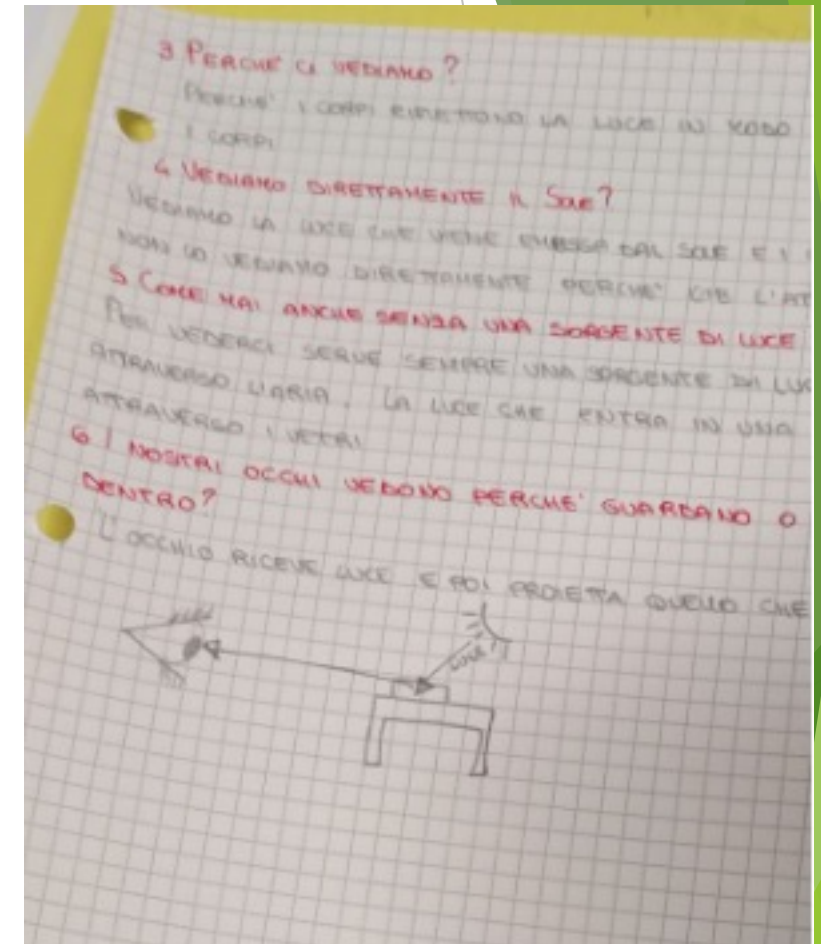 3 PERCHE' CI VEDIAMO?
PERCHE' I CORPI RIMETTONO LA LUCE IN MODO
I CORPI
4 VEDIAMO DIRETTAMENTE IL SOLE?
VEDIAMO LA LUCE CHE VIENE EMESSA DAL SOLE E I
NON LO VEDIAMO DIRETTAMENTE PERCHE' C'E' L'AT
5 COME MAI ANCHE SENZA UNA SORGENTE DI LUCE
PER VEDERCI SERVE SEMPRE UNA SORGENTE DI LUC
ATTRAVERSO L'ARIA. LA LUCE CHE ENTRA IN UNA
ATTRAVERSO I VETRI
6 I NOSTRI OCCHI VEDONO PERCHE' GUARDANO O
DENTRO?
L'OCCHIO RICEVE LUCE E POI PROIETTA QUELLO CHE
LUCE